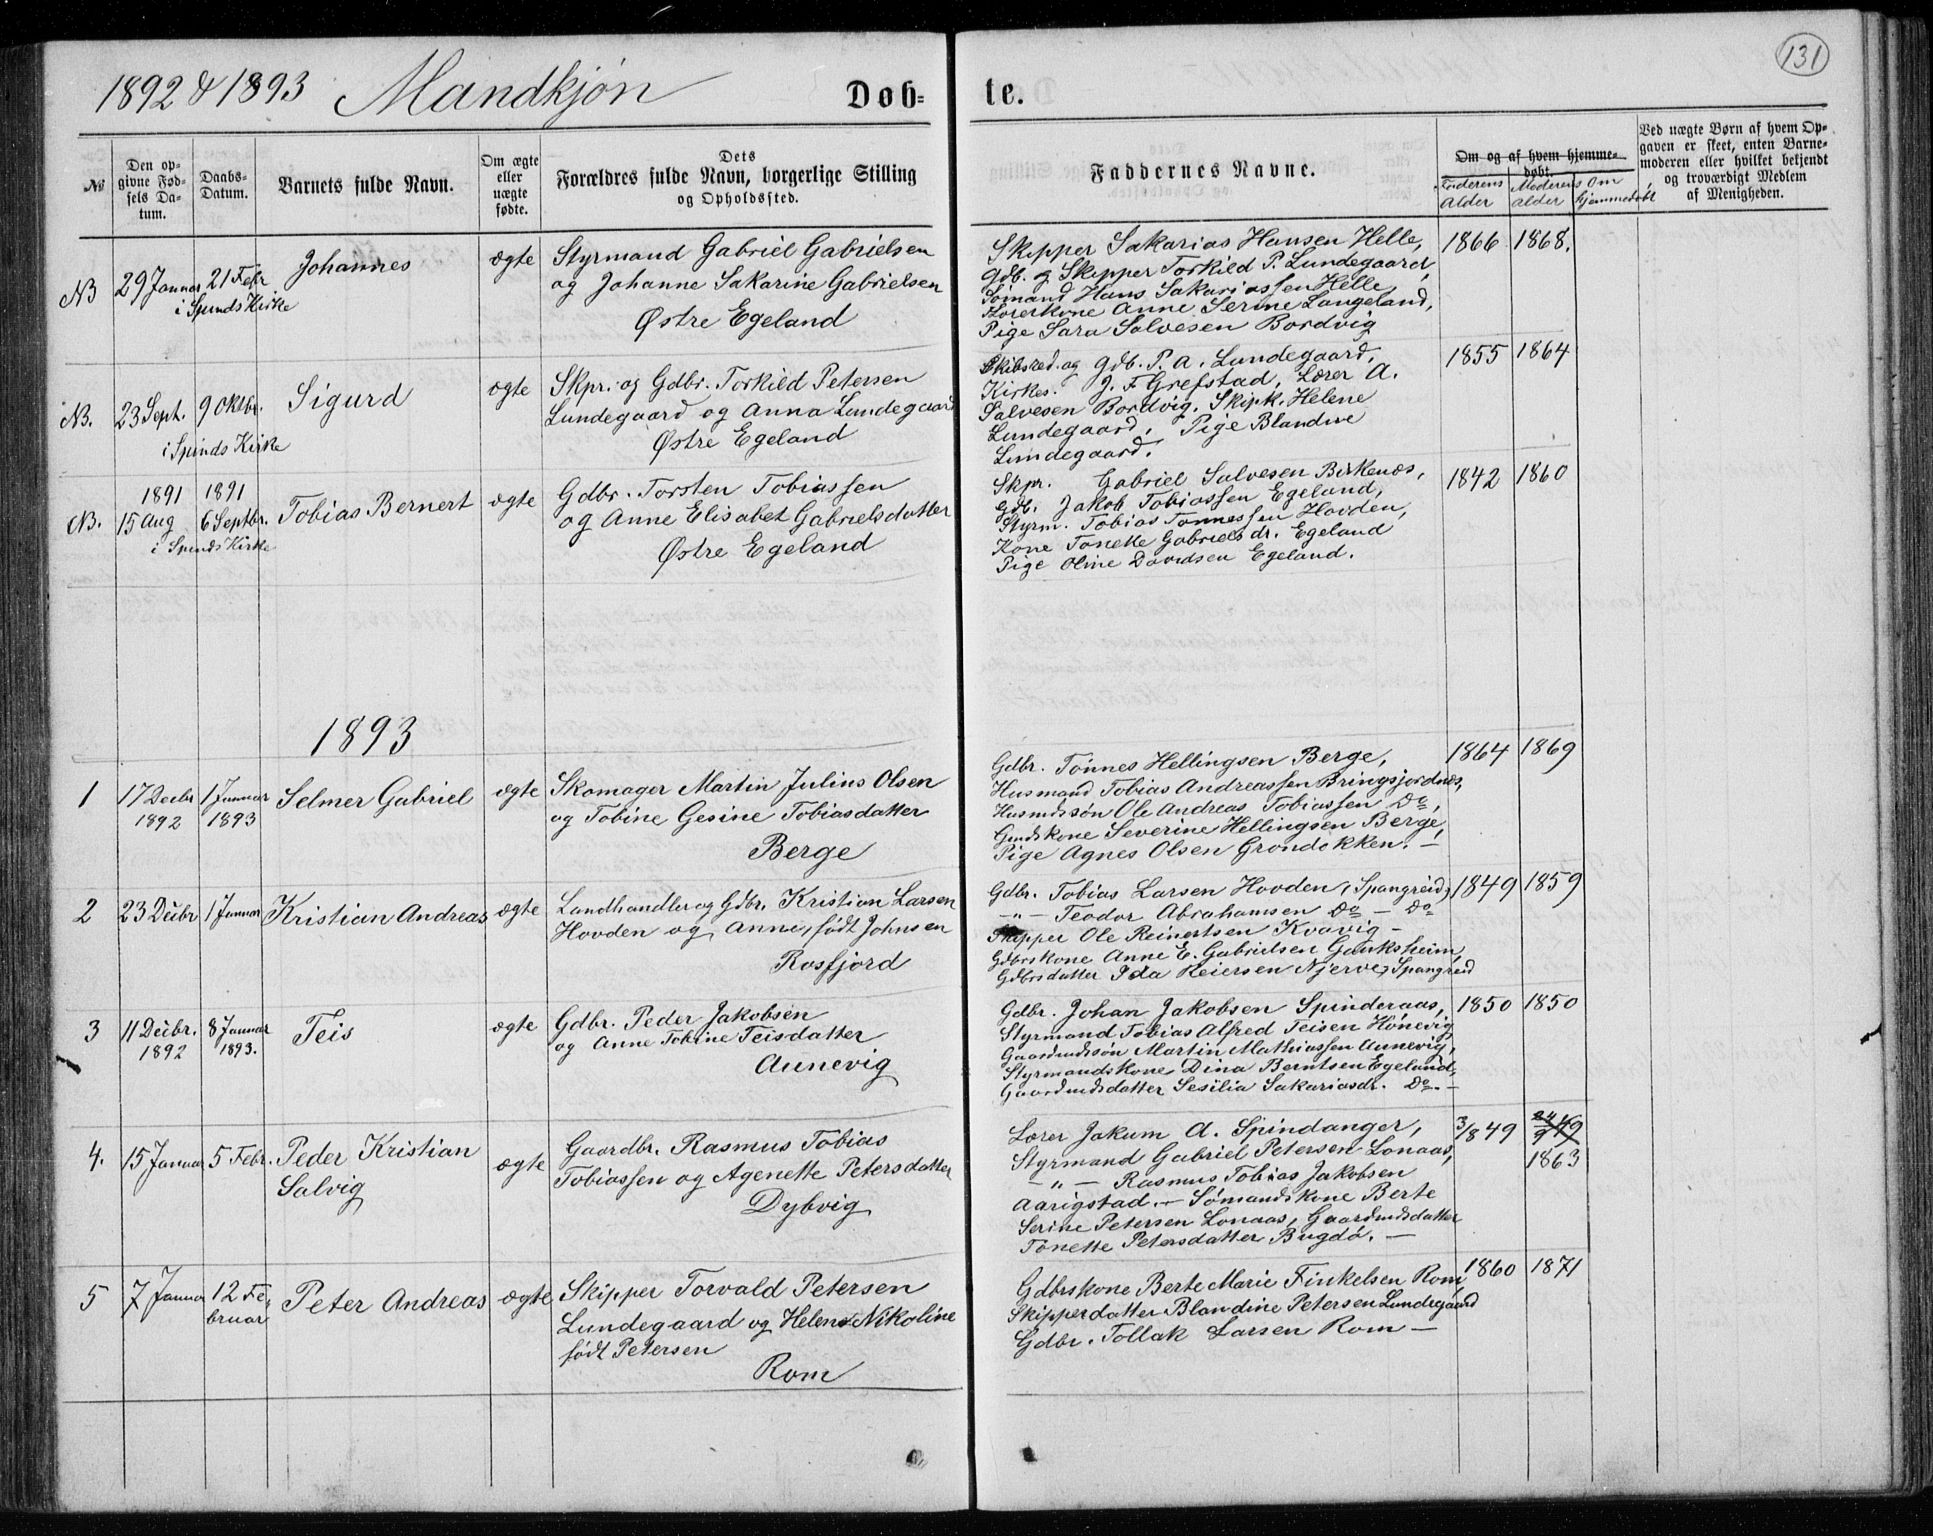 131
1892 & 1893 Mandkjøn Døb= te.
№
Den op=
givne Fød=
sels Da=
tum.
Daabs=
Datum.
Barnets fulde Navn.
Om ægte
eller
uægte
fødte.
Dets
Forældres fulde Navn, borgerlige Stilling
og Opholdssted.
Faddernes Navne.
Om og af hvem hjemme=
døbt.
Faderens Alder
Moderens alder
Om hjemmedøbt
Ved uægte Børn af hvem Op=
gaven er skeet, enten Barne=
moderen eller hvilket bekjendt
og troværdigt Medlem
af Menigheden.
NB 29 Januar 21 Febr
i Spinds Kirke
Johannes
ægte
Styrmand Gabriel Gabrielsen
og Johanne Sakarine Gabrielsen
Østre Egeland
Skipper Sakarias Hansen Helle,
Gdb. og Skipper Torkild P. Lundegaard,
Sømand Hans Sakariassen Helle
Lærerkone Anne Serine Langeland,
Pige Sara Salvesen Bordvig
1866 1868.
NB. 23 Sept. 9 Oktbr.
i Spinds Kirke
Sigurd
ægte
Skpr. og Gdbr. Torkild Petersen
Lundegaard og Anna Lundegaard
Østre Egeland
Skibsred. og Gdb. P. A. Lundegaard,
Kirkes. J. F. Grefstad, Lærer A.
Salvesen Bordvig, Skipk. Helene
Lundegaard, Pige Blandine
Lundegaard.
1855 1864
1891 1891
NB. 15 Aug 6 Septbr.
i Spinds Kirke
Tobias Bernert
ægte
Gdbr. Torsten Tobiassen
og Anne Elisabet Gabrielsdatter
Østre Egeland
Skpr. Gabriel Salvesen Birkenæs,
Gdb. Jakob Tobiassen Egeland,
Styrm. Tobias Tønnessen Hovden,
Kone Tonette Gabrielsdr. Egeland
Pige Oline Davidsen Egeland.
1842 1860
1893
1 17 Decbr 1892
1 Januar 1893
Selmer Gabriel
ægte
Skomager Martin Julius Olsen
og Tobine Gesine Tobiasdatter
Berge
Gdbr. Tønnes Hellingsen Berge,
Husmand Tobias Andreassen Bringsjordnes,
Husmdssøn Ole Andreas Tobiassen Do,
Gmdskone Severine Hellingsen Berge,
Pige Agnes Olsen Grondokken. —
1864 1869
2 23 Decbr 1 Januar
Kristian Andreas
ægte
Landhandler og Gdbr. Kristian Larsen
Hovden og Anne, født Johnsen
Rosfjord
Gdbr. Tobias Larsen Hovden, Spangreid,
— " — Teodor Abrahamsen Do — Do
Skipper Ole Reinertsen Kvavig —
Gdbrskone Anne E. Gabrielsen Gauksheim,
Gdbrsdatter Ida Reiersen Njerve, Spangreid
1849 1859
3 11 Decbr. 1892
8 Januar 1893.
Teis
ægte
Gdbr. Peder Jakobsen
og Anne Tobine Teisdatter
Aunevig
Gdbr. Johan Jakobsen Spinderaas,
Styrmand Tobias Alfred Teisen Hønevig,
Gaardmdssøn Martin Mathiassen Aunevig,
Styrmandskone Dina Berntsen Egeland,
Gaardmdsdatter Sesilia Sakariasdr. Do. —
1850 1850
4. 15 Januar 5 Febr.
Peder Kristian
Salvig
ægte
Gaardbr. Rasmus Tobias
Tobiassen og Agenette Petersdatter
Dybvig
Lærer Jakum A. Spindanger,
Styrmand Gabriel Petersen Lonaas,
— " — Rasmus Tobias Jakobsen
Aarigstad. — Sømandskone Berte
Serine Petersen Lonaas, Gaardmdsdatter
Tonette Petersdatter Bugdø. —
3/1849 1863
5 7 Januar 12 Fe-
bruar
Peter Andreas
ægte
Skipper Torvald Petersen
Lundegaard og Helene Nikoline
født Petersen
Rom
Gdbrskone Berte Marie Finkelsen Rom,
Skipperdatter Blandine Petersen Lundegaard
Gdbr. Tollak Larsen Rom —
1860 1871